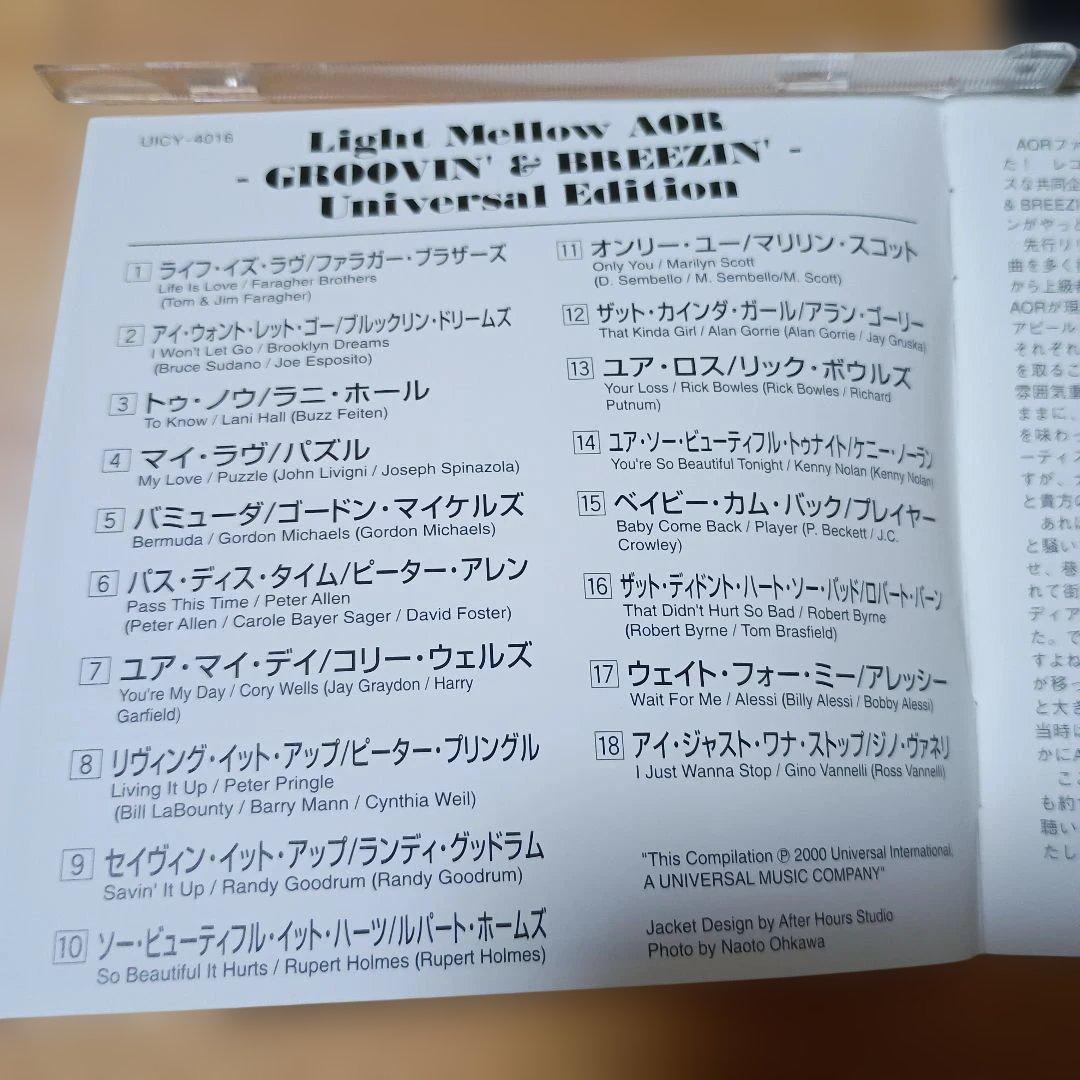 UICY-4016
Light Mellow AOR
- GROOVIN' & BREEZIN' -
Universal Edition
1 ライフ・イズ・ラヴ/ファラガー・ブラザーズ
Life Is Love / Faragher Brothers
(Tom & Jim Faragher)
2 アイ・ウォント・レット・ゴー/ブルックリン・ドリームズ
I Won't Let Go / Brooklyn Dreams
(Bruce Sudano / Joe Esposito)
3 トゥ・ノウ/ラニ・ホール
To Know / Lani Hall (Buzz Feiten)
4 マイ・ラヴ/パズル
My Love / Puzzle (John Livigni / Joseph Spinazola)
5 バミューダ/ゴードン・マイケルズ
Bermuda / Gordon Michaels (Gordon Michaels)
6 パス・ディス・タイム/ピーター・アレン
Pass This Time / Peter Allen
(Peter Allen / Carole Bayer Sager / David Foster)
7 ユア・マイ・デイ/コリー・ウェルズ
You're My Day / Cory Wells (Jay Graydon / Harry
Garfield)
8 リヴィング・イット・アップ/ピーター・プリングル
Living It Up / Peter Pringle
(Bill LaBounty / Barry Mann / Cynthia Weil)
9 セイヴィン・イット・アップ/ランディ・グッドラム
Savin' It Up / Randy Goodrum (Randy Goodrum)
10 ソー・ビューティフル・イット・ハーツ/ルパート・ホームズ
So Beautiful It Hurts / Rupert Holmes (Rupert Holmes)
11 オンリー・ユー/マリリン・スコット
Only You / Marilyn Scott
(D. Sembello / M. Sembello/M. Scott)
12 ザット・カインダ・ガール/アラン・ゴーリー
That Kinda Girl / Alan Gorrie (Alan Gorrie / Jay Gruska)
13 ユア・ロス/リック・ボウルズ
Your Loss / Rick Bowles (Rick Bowles / Richard
Putnum)
14 ユア・ソー・ビューティフル・トゥナイト/ケニー・ノーラン
You're So Beautiful Tonight / Kenny Nolan (Kenny Nolan)
15 ベイビー・カム・バック/プレイヤー
Baby Come Back / Player (P. Beckett / J.C.
Crowley)
16 ザット・ディドント・ハート・ソー・バッド/ロバート・バーン
That Didn't Hurt So Bad / Robert Byrne
(Robert Byrne / Tom Brasfield)
17 ウェイト・フォー・ミー/アレッシー
Wait For Me / Alessi (Billy Alessi / Bobby Alessi)
18 アイ・ジャスト・ワナ・ストップ/ジノ・ヴァネリ
I Just Wanna Stop / Gino Vannelli (Ross Vannelli)
"This Compilation ℗ 2000 Universal International,
A UNIVERSAL MUSIC COMPANY"
Jacket Design by After Hours Studio
Photo by Naoto Ohkawa
AORファ
た! レコ
スな共同企
& BREEZI
ンがやっと
先行リリ
曲を多く
から上級者
AORが現
アピール
それぞれ
を取るこ
雰囲気重
ままに、
を味わっ
ーティス
すが、
と貴方の
あれは
と騒い
せ、巷
れて街
ディア
た。で
すよね
が移っ
と大き
当時に
かにA
こ
も約
聴い
たし